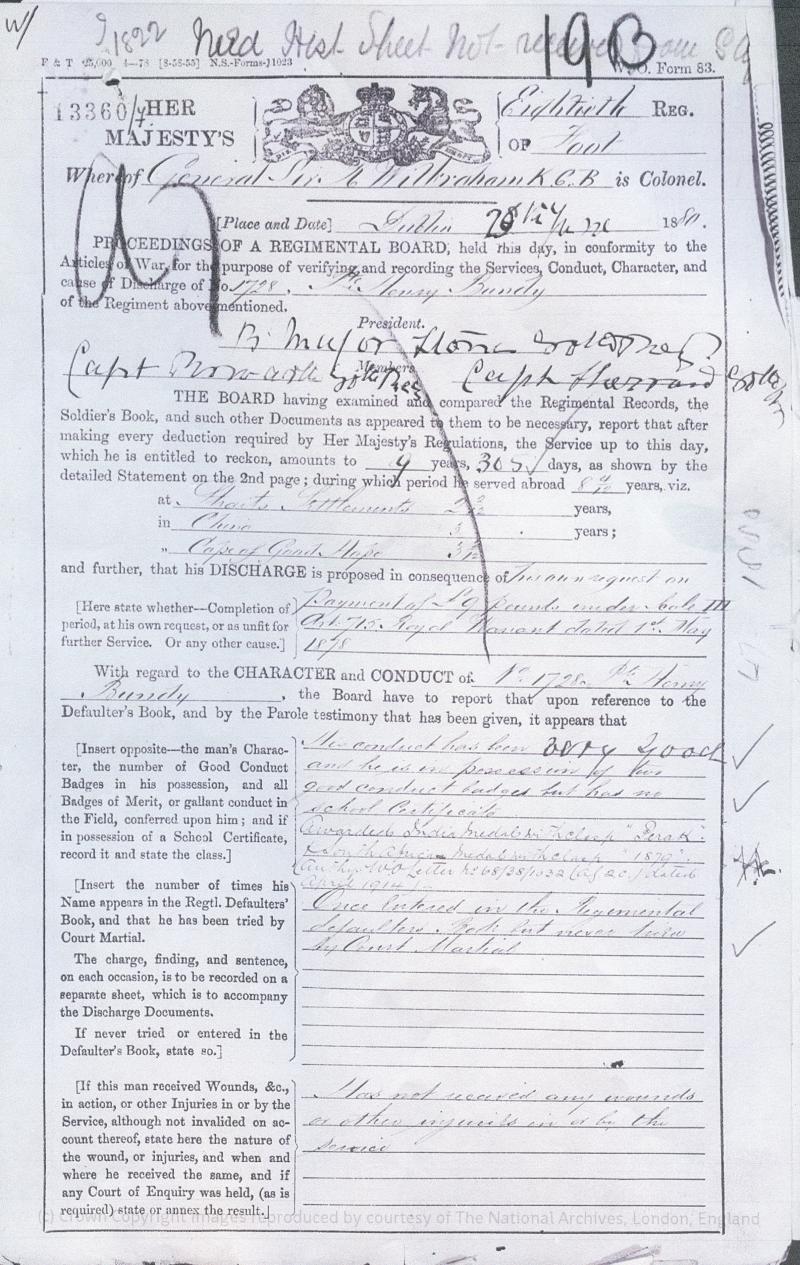 W/ 1822 Med Hist Sheet Not received from
19B
F & T 25,000 4—78 [8-58-55] N.S.-Forms-J1023
W.O. Form 83.
13360/ HER MAJESTY'S Eightieth REG. OF Foot
Whereof General Sir R Wilbraham K.C.B is Colonel.
[Place and Date] Dublin 28 1880.
PROCEEDINGS OF A REGIMENTAL BOARD, held this day, in conformity to the
Articles of War, for the purpose of verifying and recording the Services, Conduct, Character, and
cause of Discharge of No. 1728. Pte Henry Bundy
of the Regiment above mentioned.
President.
Bt Major
Members
Capt Capt
THE BOARD having examined and compared the Regimental Records, the
Soldier's Book, and such other Documents as appeared to them to be necessary, report that after
making every deduction required by Her Majesty's Regulations, the Service up to this day,
which he is entitled to reckon, amounts to 9 years, 305 days, as shown by the
detailed Statement on the 2nd page; during which period he served abroad 8 years, viz.
at Straits Settlements 2 years,
in China years;
„ Cape of Good Hope
and further, that his DISCHARGE is proposed in consequence of his own request on
[Here state whether—Completion of
period, at his own request, or as unfit for
further Service. Or any other cause.]
payment of pounds under
Art: 715 Royal Warrant dated 1st May
1878
With regard to the CHARACTER and CONDUCT of No 1728 Pte Henry
Bundy, the Board have to report that upon reference to the
Defaulter's Book, and by the Parole testimony that has been given, it appears that
[Insert opposite—the man's Charac-
ter, the number of Good Conduct
Badges in his possession, and all
Badges of Merit, or gallant conduct in
the Field, conferred upon him; and if
in possession of a School Certificate,
record it and state the class.]
His conduct has been very good
and he is in possession of two
good conduct badges but has no
school Certificate
Awarded India medal with clasp "Perak".
South African Medal with clasp "1879".
Auth: W.O. Letter No 68/38/1032 (A.G.2c.) dated
April 1914
[Insert the number of times his
Name appears in the Regtl. Defaulters'
Book, and that he has been tried by
Court Martial.
The charge, finding, and sentence,
on each occasion, is to be recorded on a
separate sheet, which is to accompany
the Discharge Documents.
If never tried or entered in the
Defaulter's Book, state so.]
Once Entered in the Regimental
defaulters Book but never tried
by Court Martial
[If this man received Wounds, &c.,
in action, or other Injuries in or by the
Service, although not invalided on ac-
count thereof, state here the nature of
the wound, or injuries, and when and
where he received the same, and if
any Court of Enquiry was held, (as is
required) state or annex the result.]
Has not received any wounds
or other injuries in or by the
service
(c) Crown Copyright Images reproduced by courtesy of The National Archives, London, England